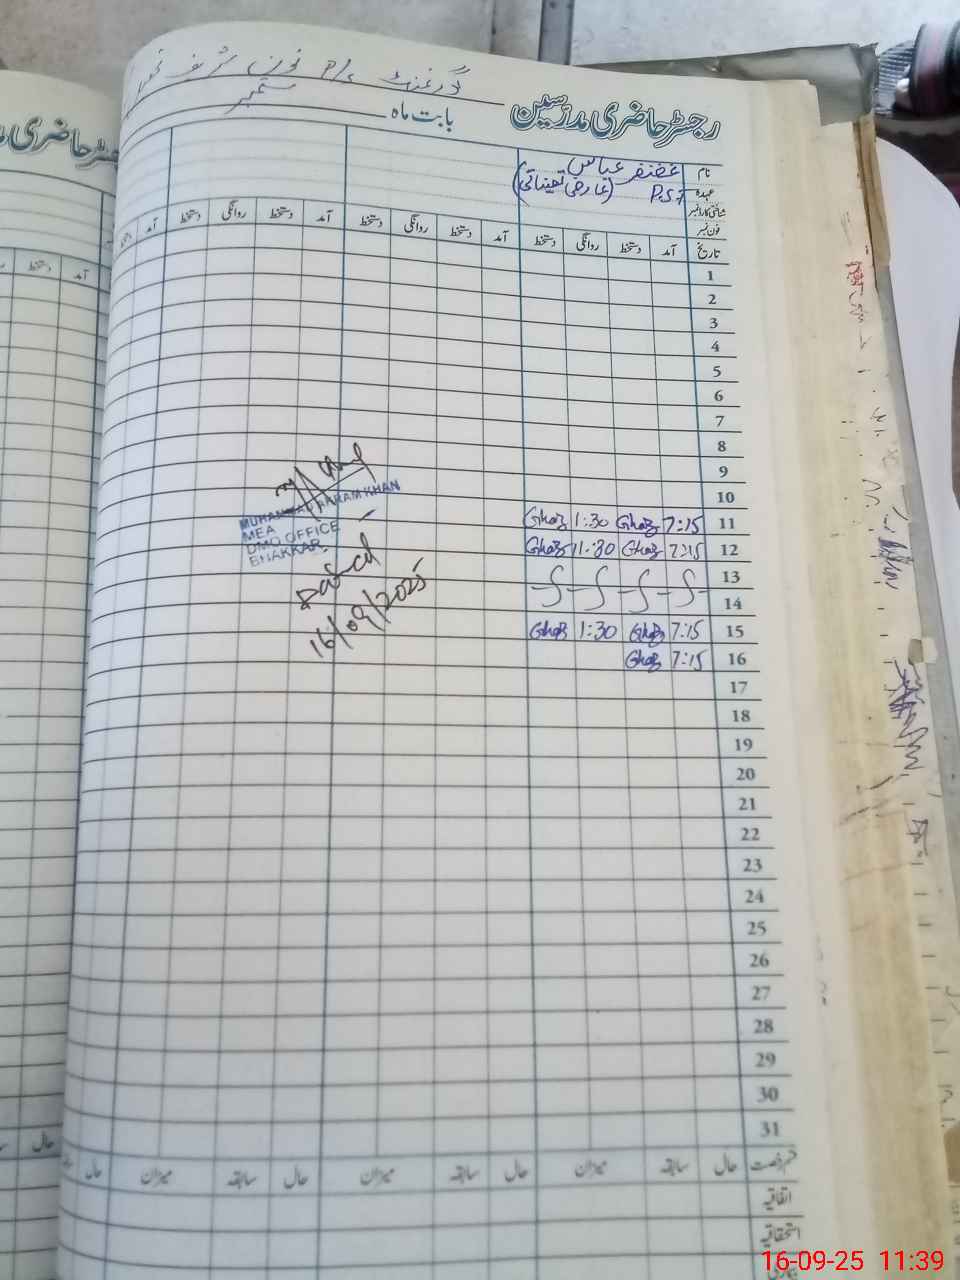 رجسٹر حاضری مدرسین
گورنمنٹ
بابت ماہ ستمبر
نام غضنفر عباس
عہدہ P.S.T (عارضی تعیناتی)
شناختی کارڈ نمبر
فون نمبر
تاریخ آمد دستخط روانگی دستخط آمد دستخط روانگی دستخط آمد دستخط روانگی دستخط آمد
1
2
3
4
5
6
7
8
9
10
11 7:15 Ghaz 1:30 Ghaz
12 7:15 Ghaz 11:30 Ghaz
13
14
15 7:15 Ghaz 1:30 Ghaz
16 7:15 Ghaz
MUHAMMAD AKRAM KHAN
MEA
DMO OFFICE
BHAKKAR
16/09/2025
17
18
19
20
21
22
23
24
25
26
27
28
29
30
31
قسم رخصت حال سابقہ میزان حال سابقہ میزان حال سابقہ میزان حال
اتفاقیہ
استحقاقیہ
رجسٹر حاضری
آمد دستخط
حال
16-09-25 11:39